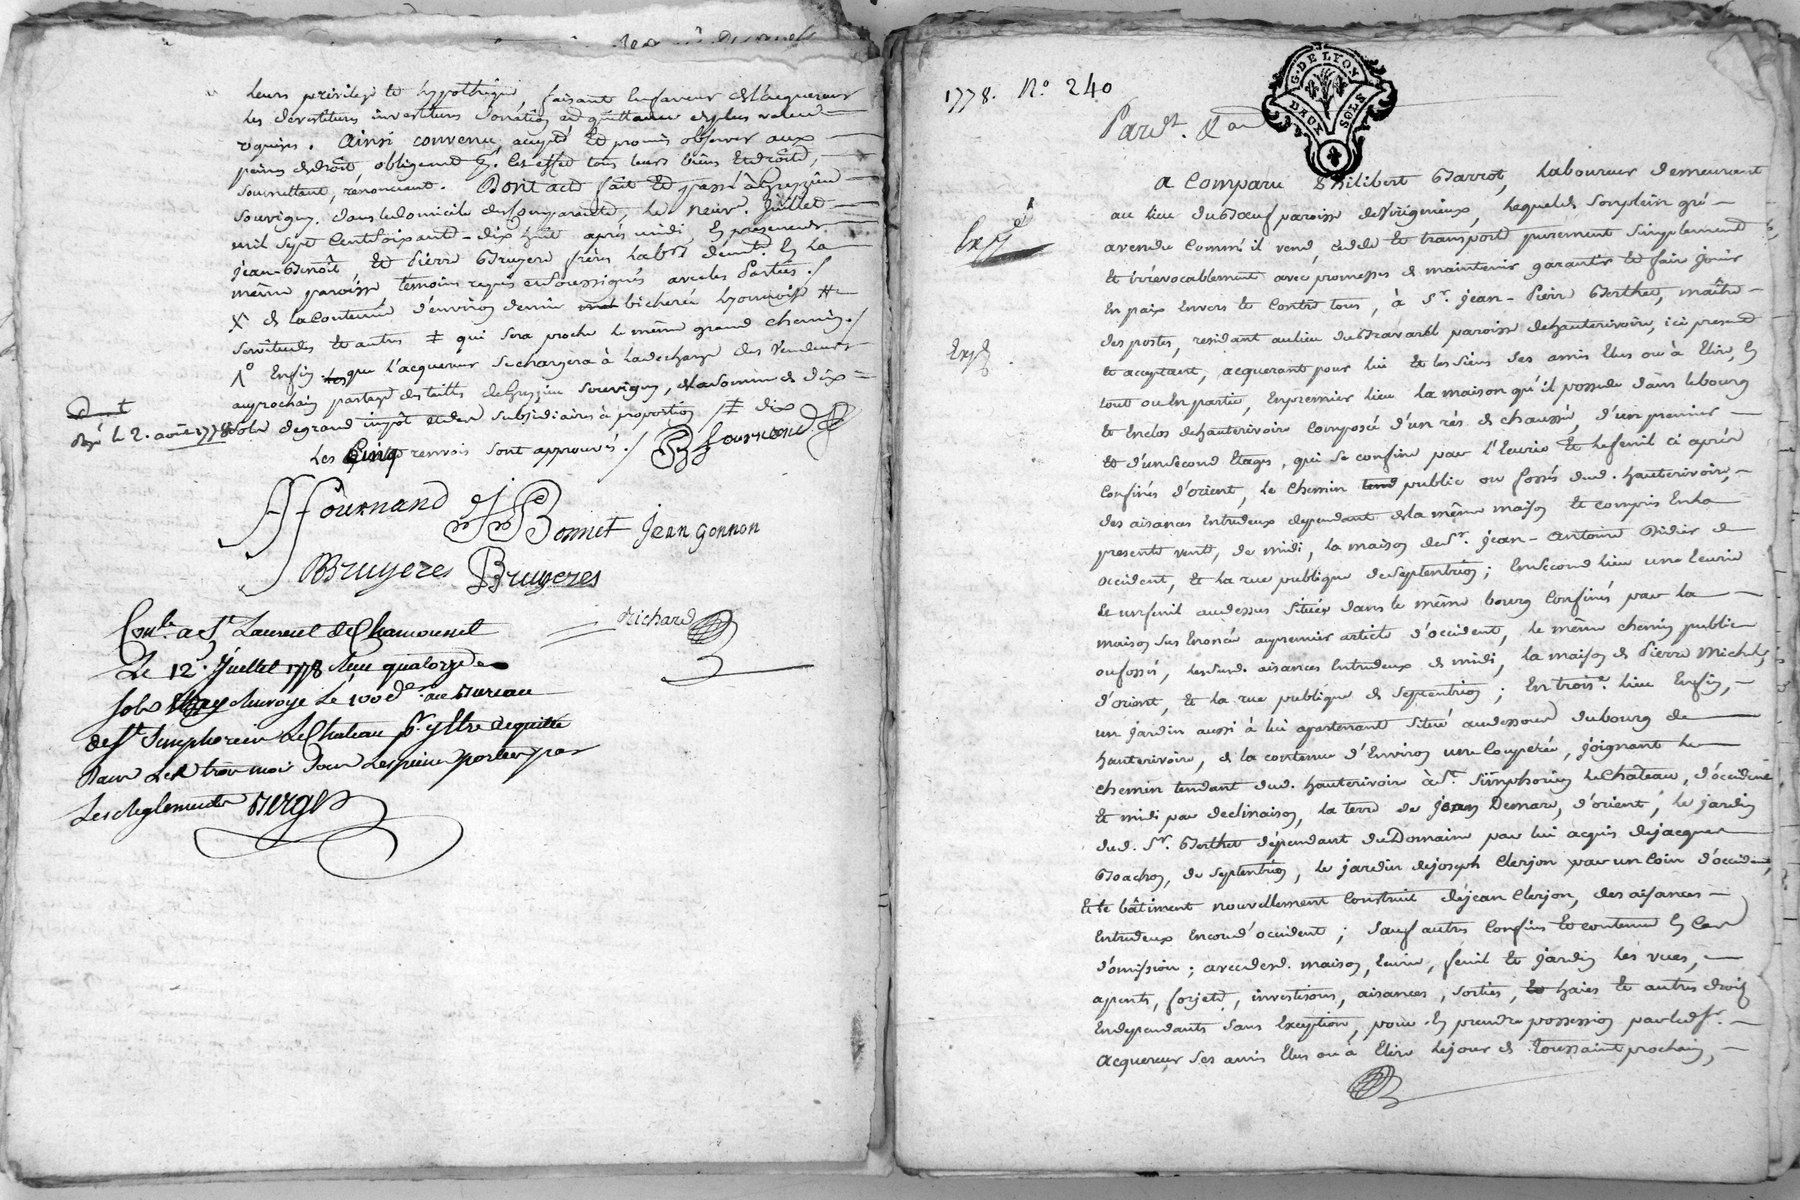 leurs privilege et hypotheque faisant en faveur de l'acquereur
les devestitures investitures donation et quittance de plus value
requises. Ainsi convenu, accepté et promis observer aux
peines de droit, obligeant
soumettant, renonceant. Dont acte fait et passé à Grezzieu
Souvigny, dans le domicile le neuf Juillet
mil sept cent soixante-dix huit après midi, en presence de
jean-Benoît, et Pierre Bruyere frères lab.rs demt. en la
même paroisse temoins requis et soussignés avec les Parties./
X de la contenue d'environ demie bicherée lyonnoise #
servitudes et autres ‡ qui sera proche le même grand chemin./
1° Enfin que l'acquereur se chargera à la decharge des vendeurs
au prochain partage des tailles de Grezzieu Souvigny, de la somme de dix
sols de grand impôt et des subsidiaires à proportion /‡ dix
Les cinq renvois sont approuvés./ Fournand
Expé le 2. août 1778
AFournand Bonnet Jean Gonnon
Bruyeres Bruyeres
Richard
Conlé a St Laurent de Chamousset
Le 12e. Juillet 1778 Reçu quatorze
sols Renvoyé le 100e de. au Bureau
de St Simphorien Le Chateau
dans les trois mois sous les peines portées par
Les Reglements Berger
1778. N° 240
Pardt.
G. DE LYON
DEUX SOLS
a Comparu Philibert Barrot, Laboureur demeurant
au lieu du Bœuf paroisse de Virigneux, lequel de son plein gré
a vendu comme il vend, cedde et transporte purement simplement
Expé
et irrévocablement avec promesses de maintenir garantir et faire jouir
en paix envers et contre tous, à Sr. jean-Pierre Berthet, maître
des postes, residant au lieu du Bravard paroisse de hauterivoire, ici present
Expé
et acceptant, acquerant pour lui et les siens ses amis élus ou à élire, en
tout ou en partie, en premier lieu la maison qu'il possede dans le bourg
et Enclos de hauterivoire composée d'un rés de chaussée, d'un premier
et d'un second étages, qui se confine par l'Ecurie et le fenil ci après
confinés d'orient, le chemin tend public ou fossés dud. hauterivoire,
des aisances entredeux dependant de la même maison et compris en la
presente vente, de midi, la maison de Sr. jean-Antoine Didier de
occident, et la rue publique de septentrion; en second lieu une Ecurie
et un fenil au dessus situés dans le même bourg confinés par la
maison sus enoncée au premier article d'occident, le même chemin public
ou fossé, lesd. aisances entredeux de midi, la maison de Pierre Michel,
d'orient, et la rue publique de septentrion; en troise. lieu Enfin,
un jardin aussi à lui apartenant situé au dessous du bourg de
hauterivoire, de la contenue d'Environ une coupérée, joignant le
chemin tendant dud. hauterivoire à St. Simphorien le Chateau, d'occident
et midi par declinaison, la terre de Jean Demare, d'orient, le jardin
dud. Sr. Berthet dépendant du Domaine par lui acquis de jacques
Boachon, de septentrion, le jardin de joseph Clerjon par un coin d'occident,
et le bâtiment nouvellement construit de jean Clerjon, des aisances
entredeux encore d'occident; sauf autres confins et contenue en cas
d'omission; avec desd. maison, Ecurie, fenil et jardin les vues,
apents, forjets, investisons, aisances, sorties, et haies et autres droits
en dependants sans exception, pour en prendre possession par led Sr.
Acquereur ses amis élus ou à élire le jour de toussaint prochain,